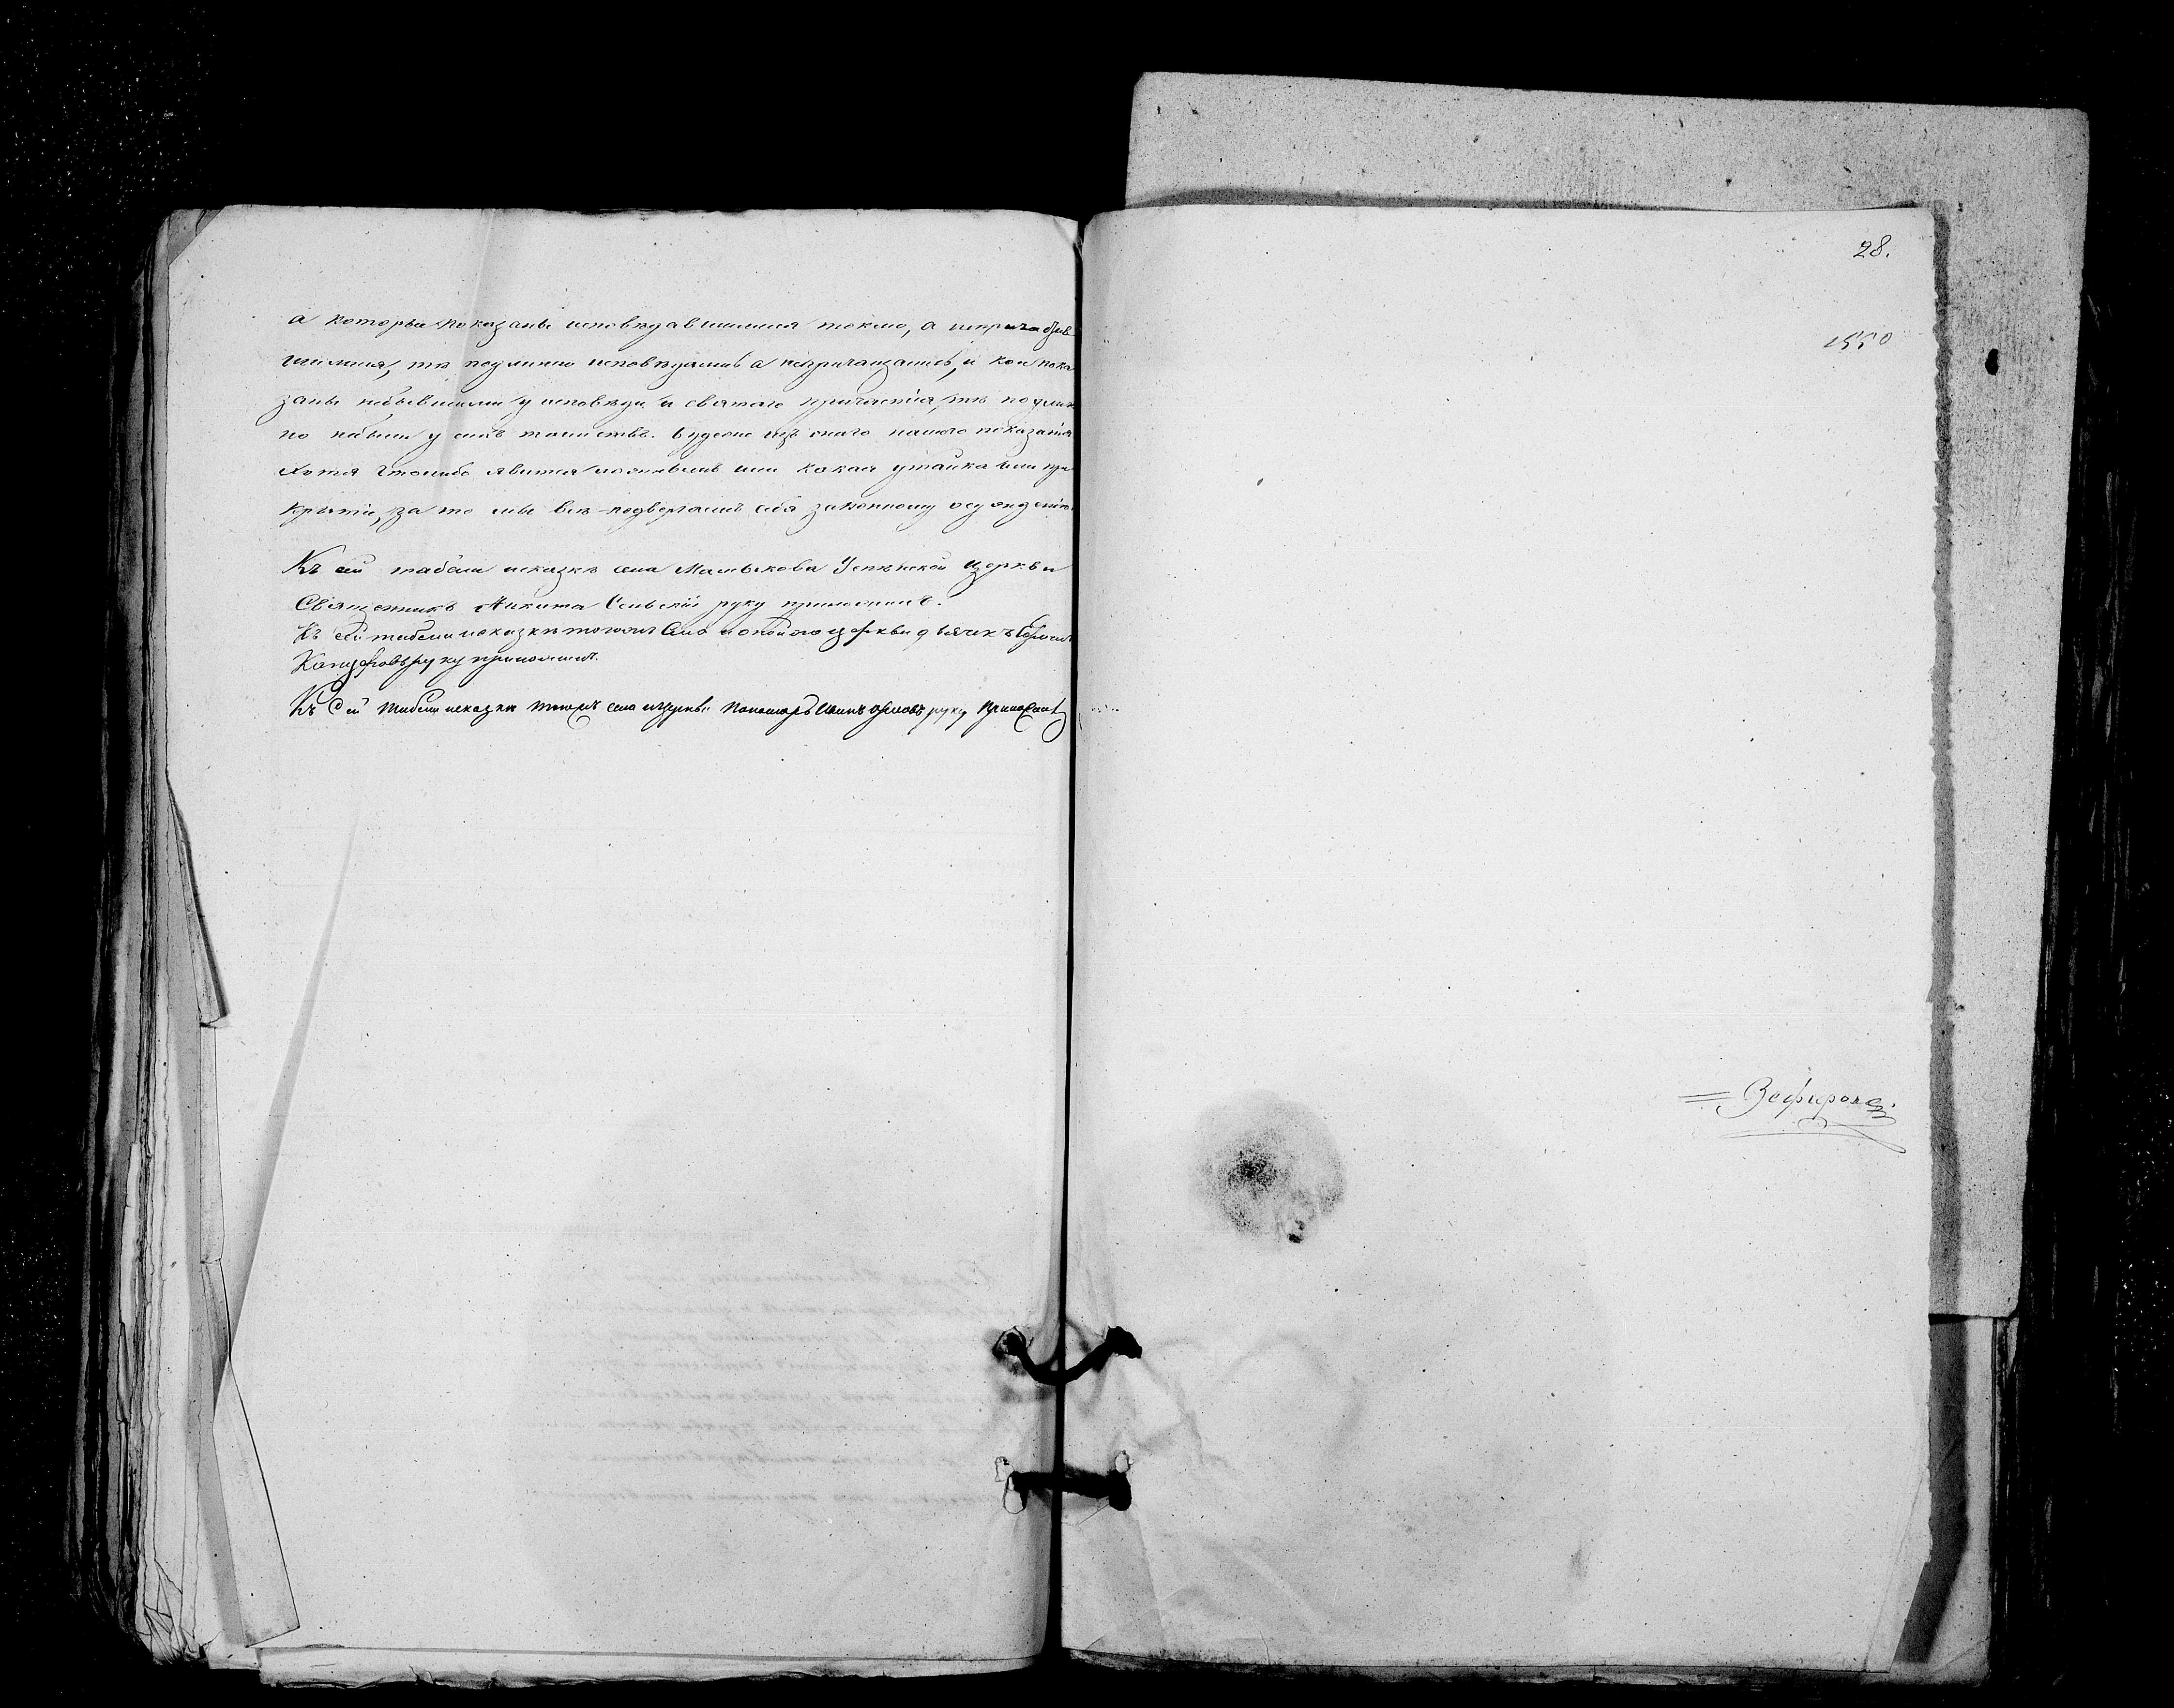 а которыя показаны исповѣдавшимися токмо, а неприча
шимися, тѣ подлинно исповѣдались а непричащались, и кои пока
заны небывшими у исповѣди и святаго причастія, тѣ подлин
но небыли у сихъ таинствъ. Будеже изъ сего нашего показанія
хотя чтолибо явится ложнымъ или какая утайка или при
крытіе, за то мы всѣ подвергаемъ себя законному осужденію.
Къ сей табели и сказкѣ села Успѣнской церкви
Священникъ Никита руку приложилъ.
Къ сей табели и сказкѣ тогожъ села и оной же церкви дьячекъ
руку приложилъ.
Къ сей табели и сказкѣ тогожъ села и церкви Пономарь руку приложилъ
28.
1550
= Зефировъ.